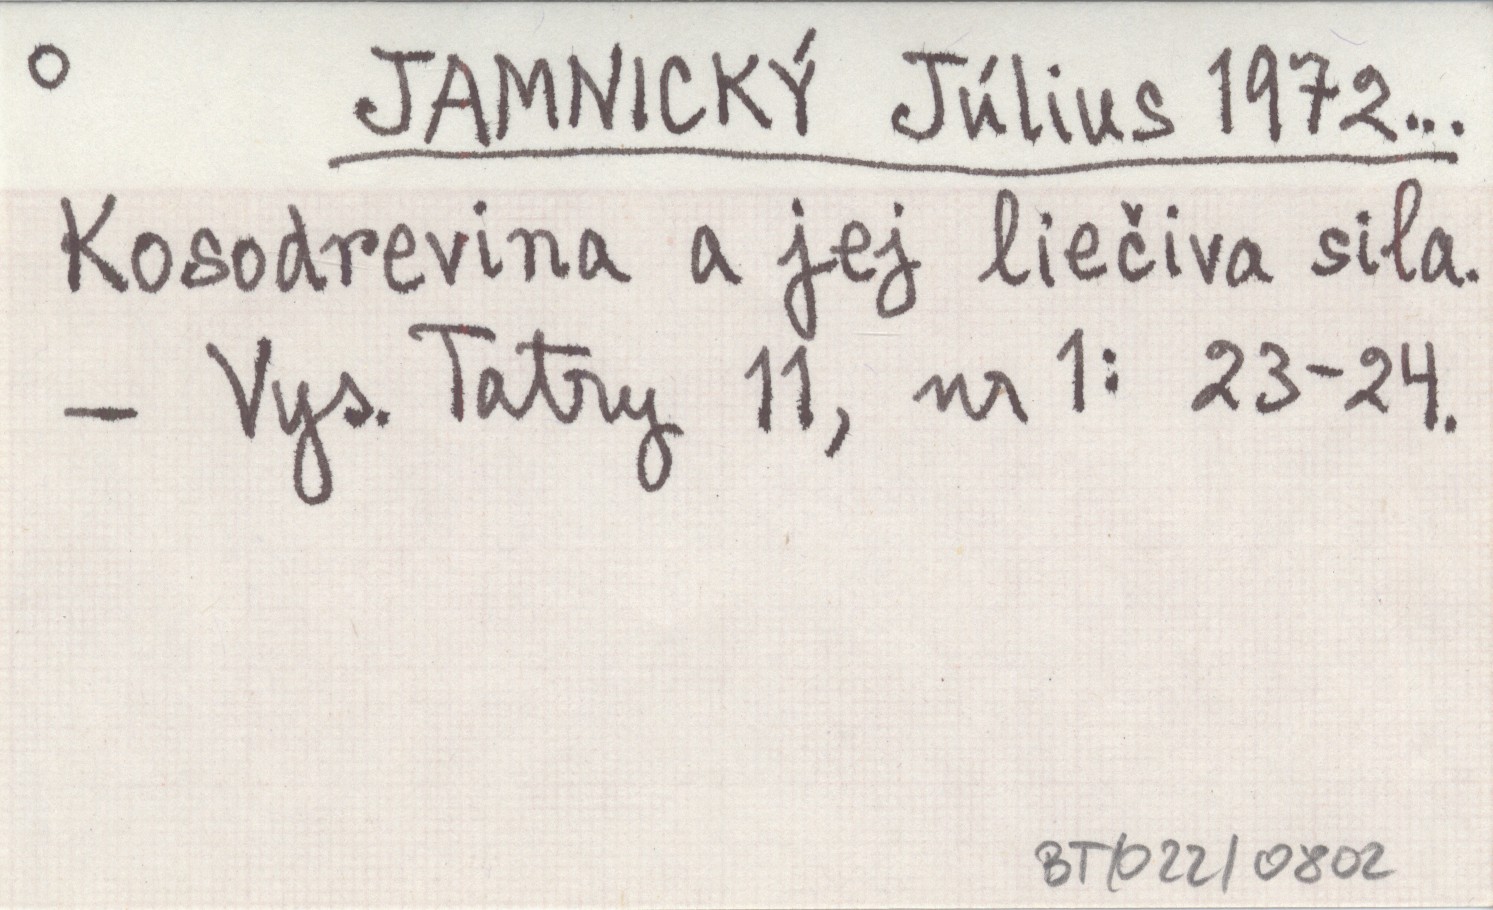 o JAMNICKÝ Július 1972...
Kosodrevina a jej liečiva sila.
— Vys. Tatry 11, nr 1: 23-24.
BT/022/0802